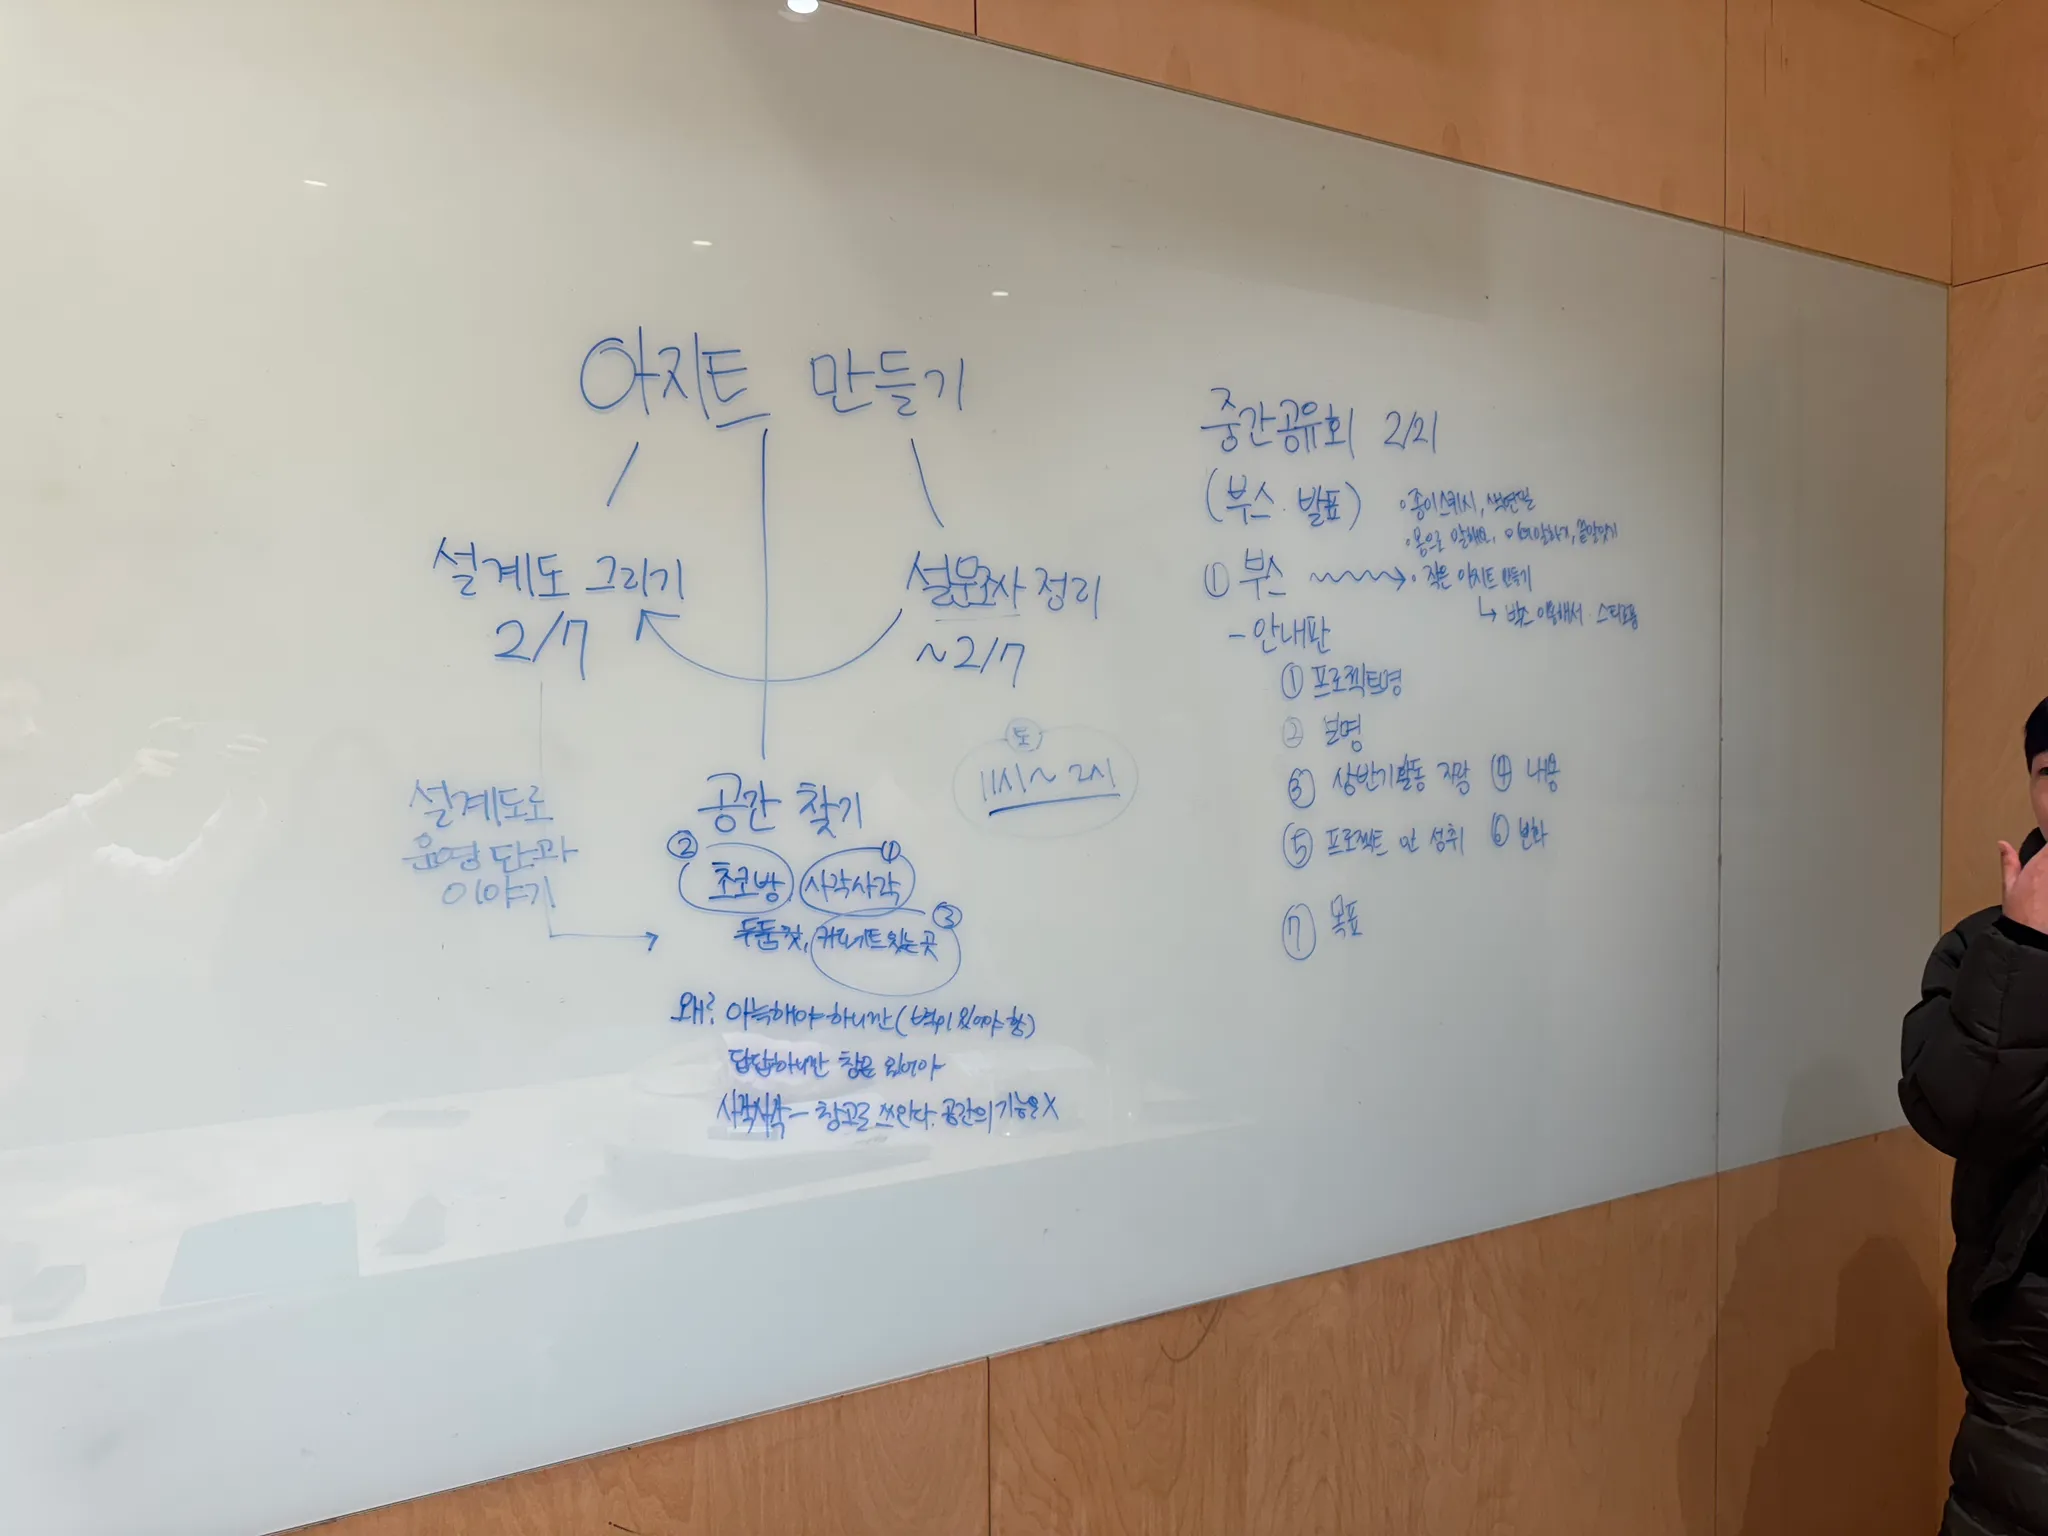 아지트 만들기
설계도 그리기
2/7
설문조사 정리
~2/7
토
11시~2시
설계도로
운영단과
이야기
공간 찾기
② ①
초코방, 사각사각
③
카페트 있는 곳
왜? 아늑해야하니깐 (벽이 있어야 함)
답답하니깐 창문 있어야
사각사각 - 창고로 쓰인다. 공간의 기능은 X
중간공유회 2/21
(부스·발표)
• 종이스케치, 색연필
• 몸으로 말해요,
① 부스 • 작은 아지트 만들기
↳ 박스 이용해서
- 안내판
① 프로젝트명
②
③ 상반기활동 ④ 내용
⑤ 프로젝트 성취 ⑥ 변화
⑦ 목표